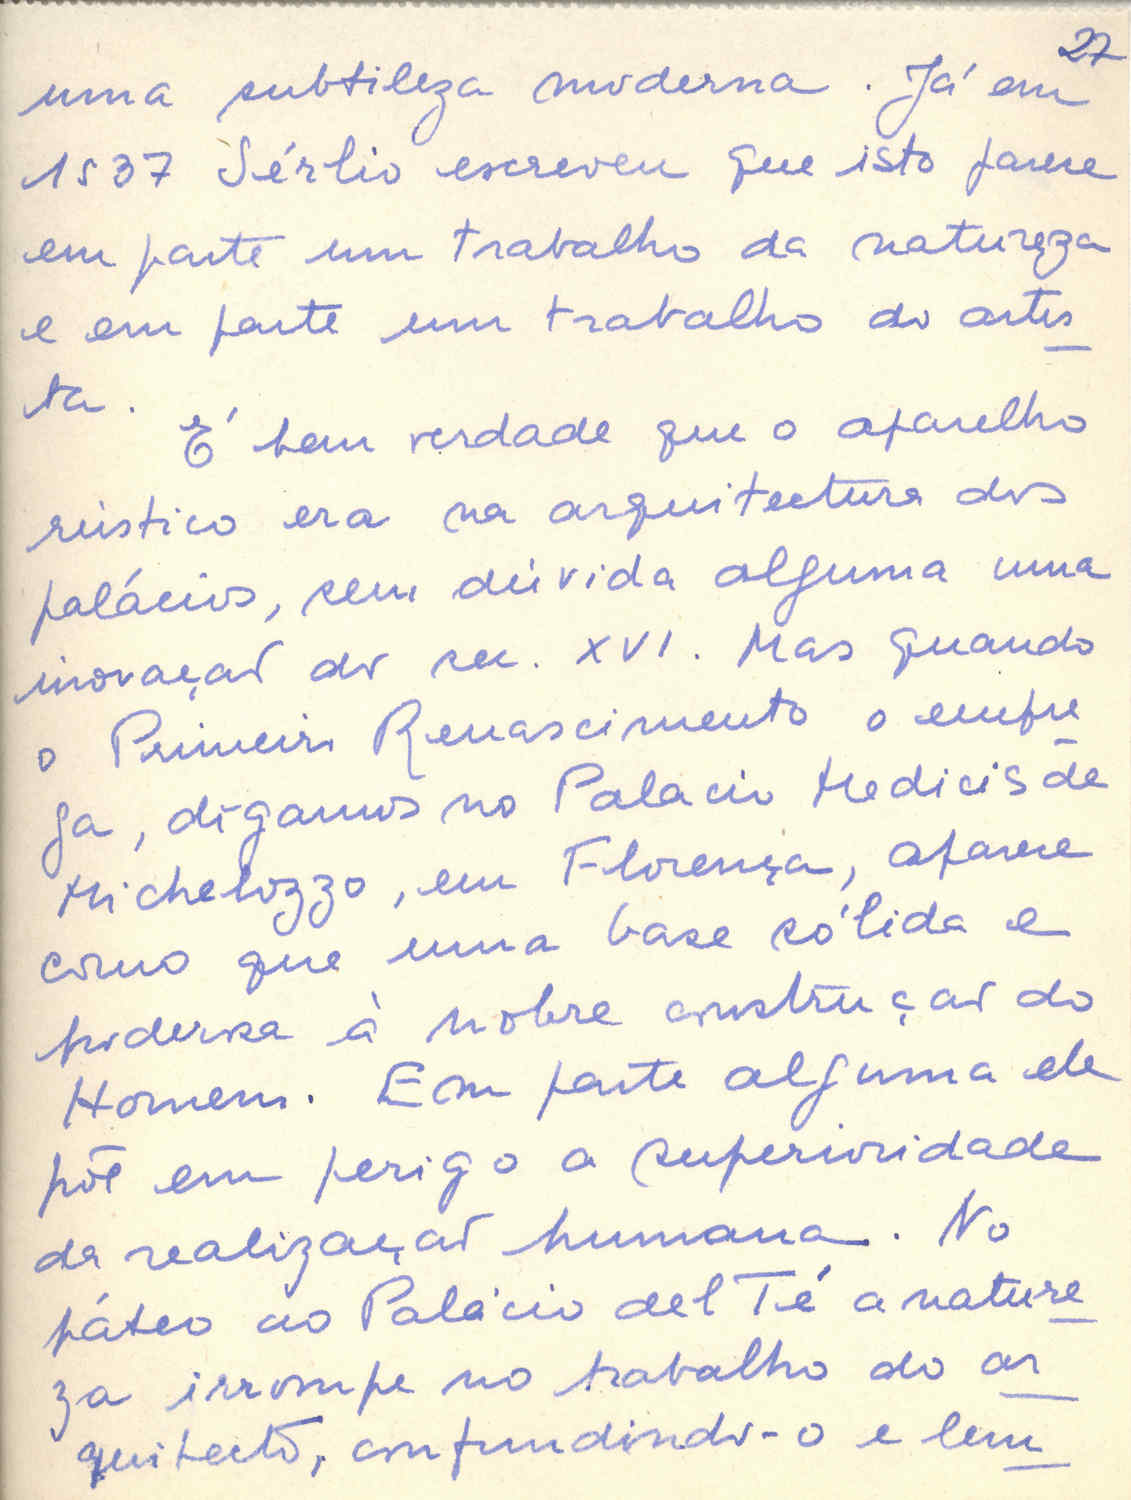 27
uma subtileza moderna. Já em
1537 Sérlio escreveu que isto parece
em parte um trabalho da natureza
e em parte um trabalho do artis
ta.
É bem verdade que o aparelho
rústico era na arquitectura dos
palácios, sem dúvida alguma uma
inovação do sec. XVI. Mas quando
o Primeiro Renascimento o empre
ga, digamos no Palacio Medicis de
Michelozzo, em Florença, aparece
como que uma base sólida e
poderosa à nobre construção do
Homem. Em parte alguma ele
põe em perigo a superioridade
da realização humana. No
páteo do Palácio del Té a nature
za irrompe no trabalho do ar
quitecto, confundindo-o e lem